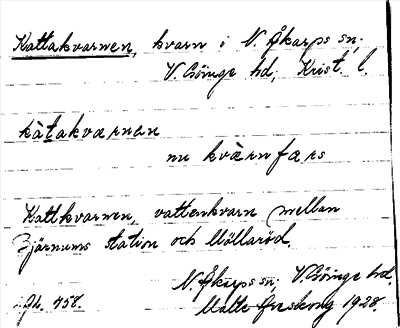 Kattakvarnen, kvarn i N. Åkarps sn;
V. Göinge hd; Krist. l.
kàtakvarnan
nu kvärnfars
Kattkvarnen, vattenkvarn mellan
Bjärnums station och Möllaröd.
N. Åkarps sn; V. Göinge hd.
458. Malte 1928.